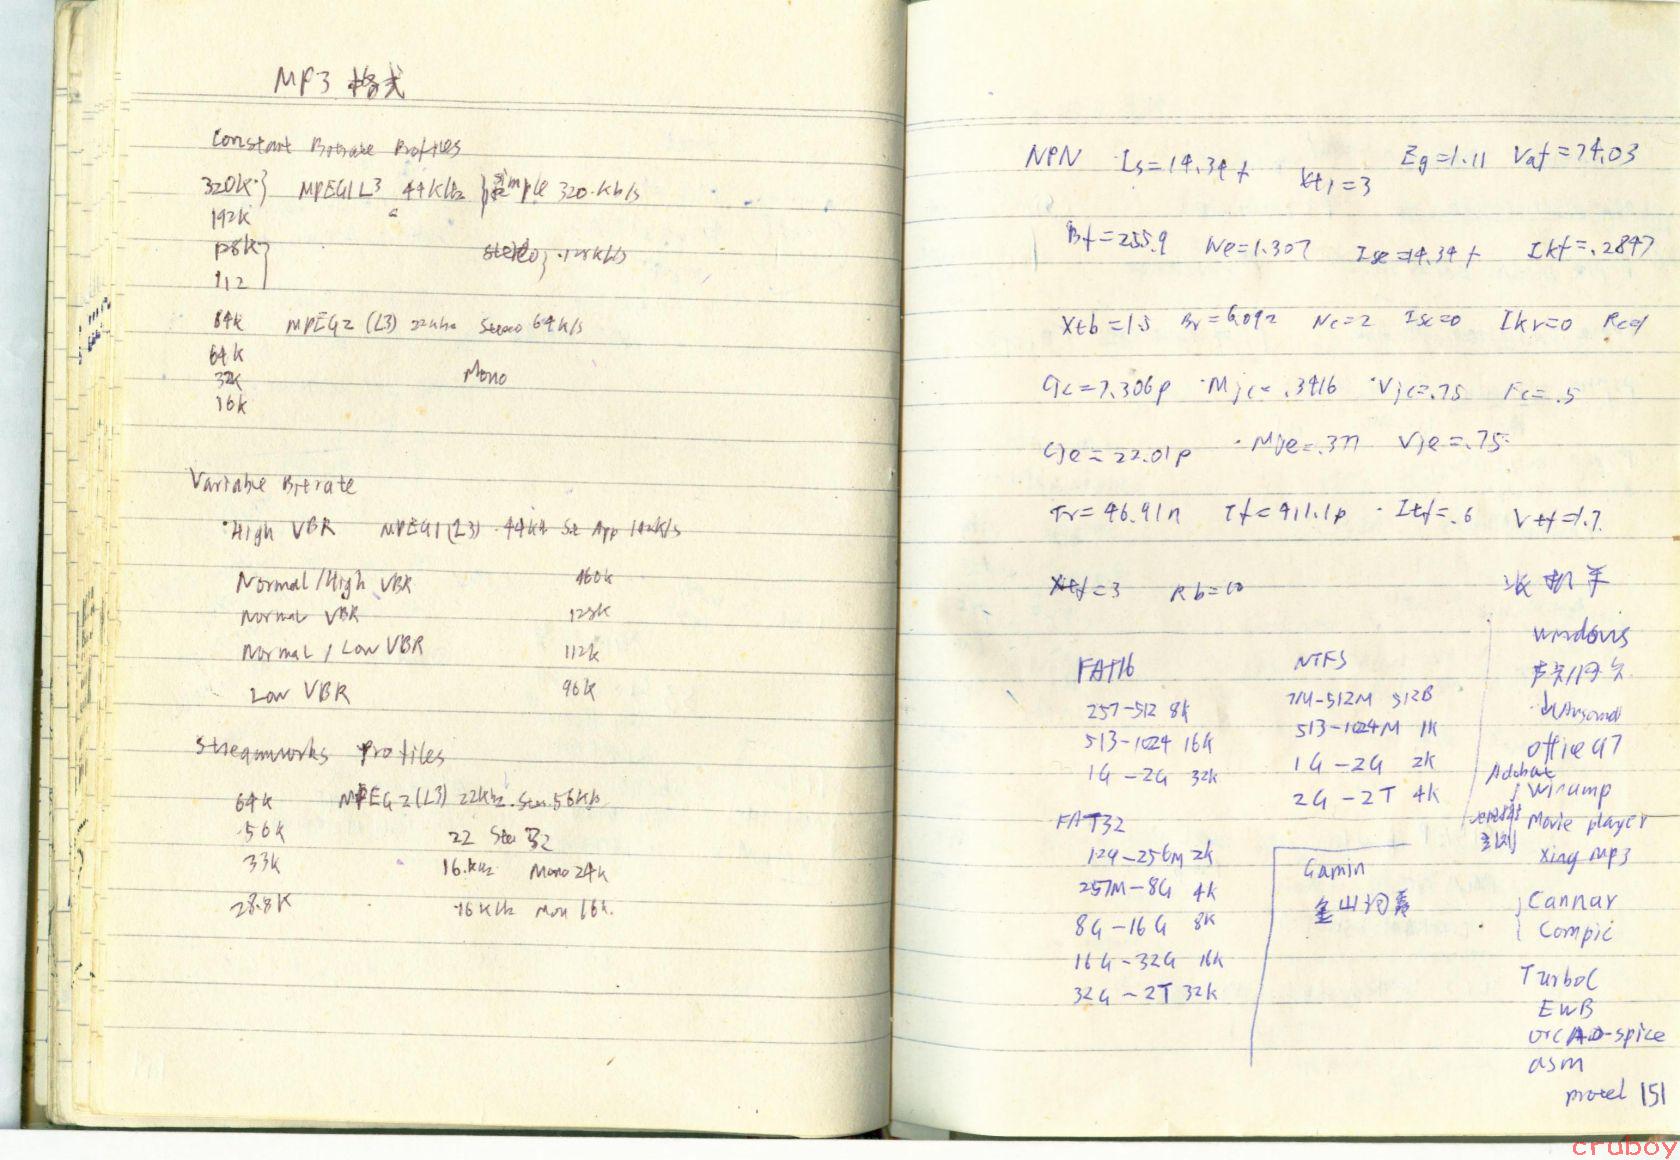 MP3 格式
Constant Bitrate Profiles
320K MPEG1 L3 44KHz 320Kb/s
192K
128K stereo 128Kb/s
112
64K MPEG2 (L3) 22khz Stereo 64K/s
64K
32K Mono
16K
Variable Bitrate
High VBR MPEG1 (L3) 44kHz St App
Normal/High VBR 160k
Normal VBR 128K
Normal / Low VBR 112K
Low VBR 96K
Streamworks Profiles
64K MPEG2 (L3) 22khz Ster 56K/s
56K 22 Ster 32
33K 16khz Mono 24k
28.8K 16KHz Mon 16k
NPN Is=14.34f Xti=3 Eg=1.11 Vaf=74.03
Bf=255.9 Ne=1.307 Ise=14.34f Ikf=.2847
Xtb=1.5 Br=6.092 Nc=2 Isc=0 Ikr=0 Rc=1
Cjc=7.306p Mjc=.3416 Vjc=.75 Fc=.5
Cje=22.01p Mje=.377 Vje=.75
Tr=46.91n Tf=411.1p Itf=.6 Vtf=1.7
Xtf=3 Rb=10
FAT16
257-512 8K
513-1024 16K
1G-2G 32K
FAT32
129-256M 2K
257M-8G 4K
8G-16G 8K
16G-32G 16K
32G-2T 32K
NTFS
-512M 512B
513-1024M 1K
1G-2G 2K
2G-2T 4K
Gamin
金山词霸
装机单
windows
office 97
Adobat
Winamp
Movie player
Xing mp3
Cannar
Compic
TurboC
EWB
orCAD-spice
asm
protel
151
cruboy